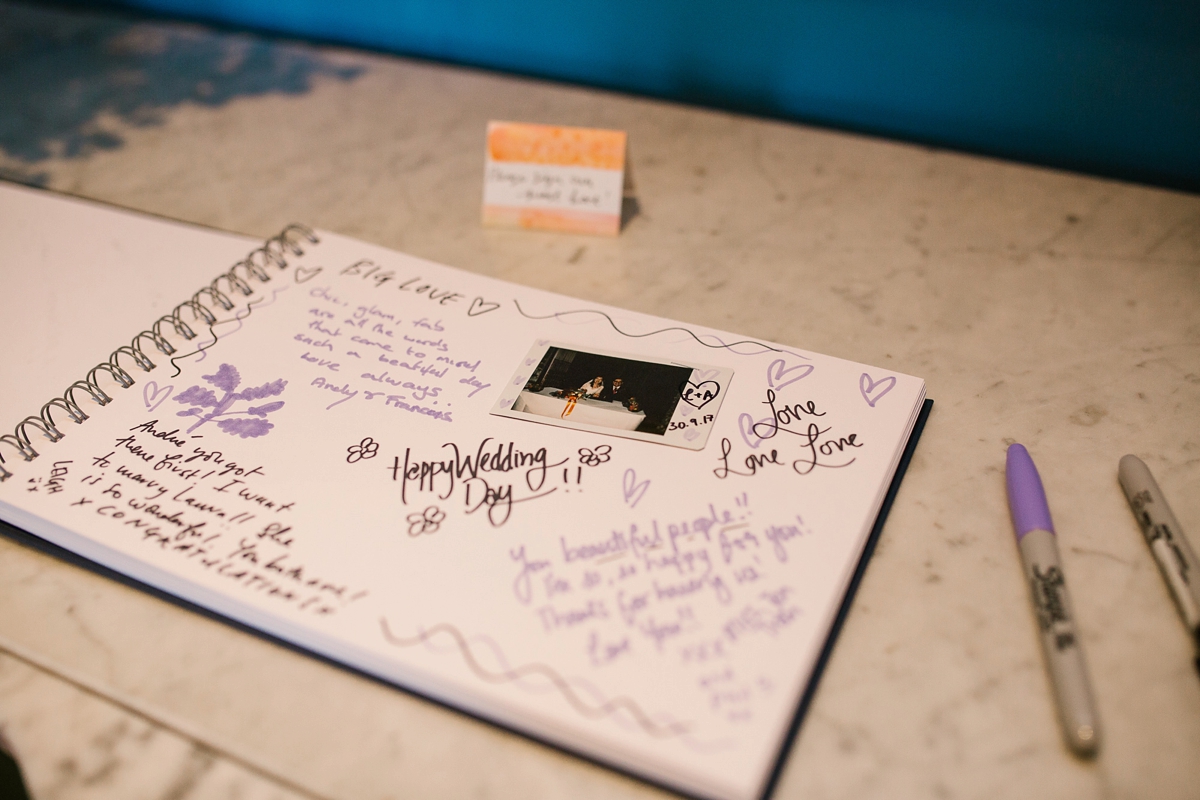 BIG LOVE
Chic, glam, fab
are all the words
that come to mind
such a beautiful day
Love always
Andy & Frances
L+A
30.9.17
Love
Love Love
Happy Wedding
Day !!
André you got
there first! I want
to marry Laura!! She
is so wonderful. You
x CONGRATULATIONS
LEIGH
You beautiful people!!
I'm so, so happy for you!
Thanks for having us!
Love you!!
xxx
Sharpie